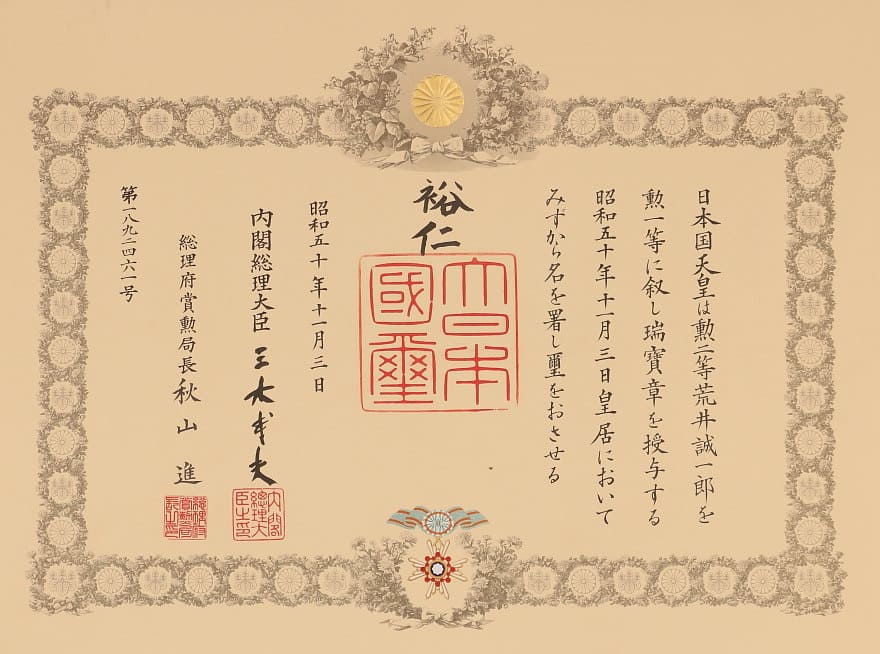 日本国天皇は勲二等荒井誠一郎を
勲一等に叙し瑞寶章を授与する
昭和五十年十一月三日皇居において
みずから名を署し璽をおさせる
裕仁
大日本
國璽
昭和五十年十一月三日
内閣総理大臣 三木武夫
内閣
總理大
臣之印
総理府賞勲局長 秋山 進
第一八九二四六一号